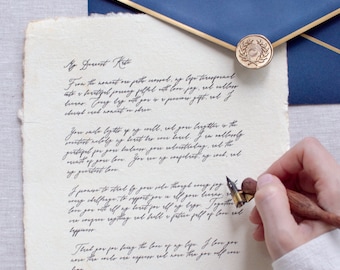 My Dearest Kate
From the moment our paths crossed, my life transformed
into a beautiful journey filled with love, joy, and endless
Every day with you is a precious gift, and I
cherish each moment we share.
You are the light of my world, and your laughter is the
sweetest melody my heart has ever heard. I am endlessly
grateful for your kindness, your understanding, and the
warmth of your love. You are my confidant, my rock, and
my greatest love.
I promise to stand by your side through every joy
every challenge, to support you
love you with all my heart and all my life. Together
we can conquer anything and build a future full of love and
happiness.
Thank you for being the love of my life. I love you
more than words can express and more than you will ever